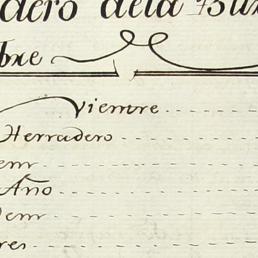 dero dela Bur
bre
Vientre
Herradero
em
Año
dem
res